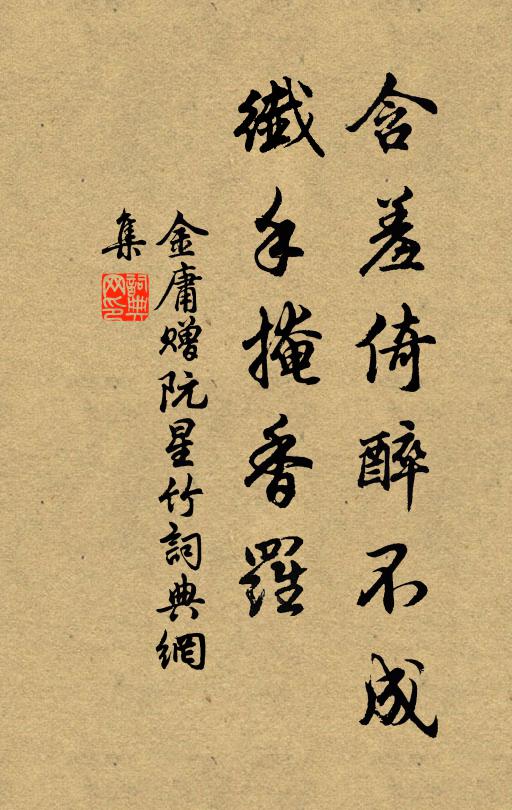 含羞倚醉不成
纖手掩香羅
金庸贈阮星竹詞典網
集
詞典
网印